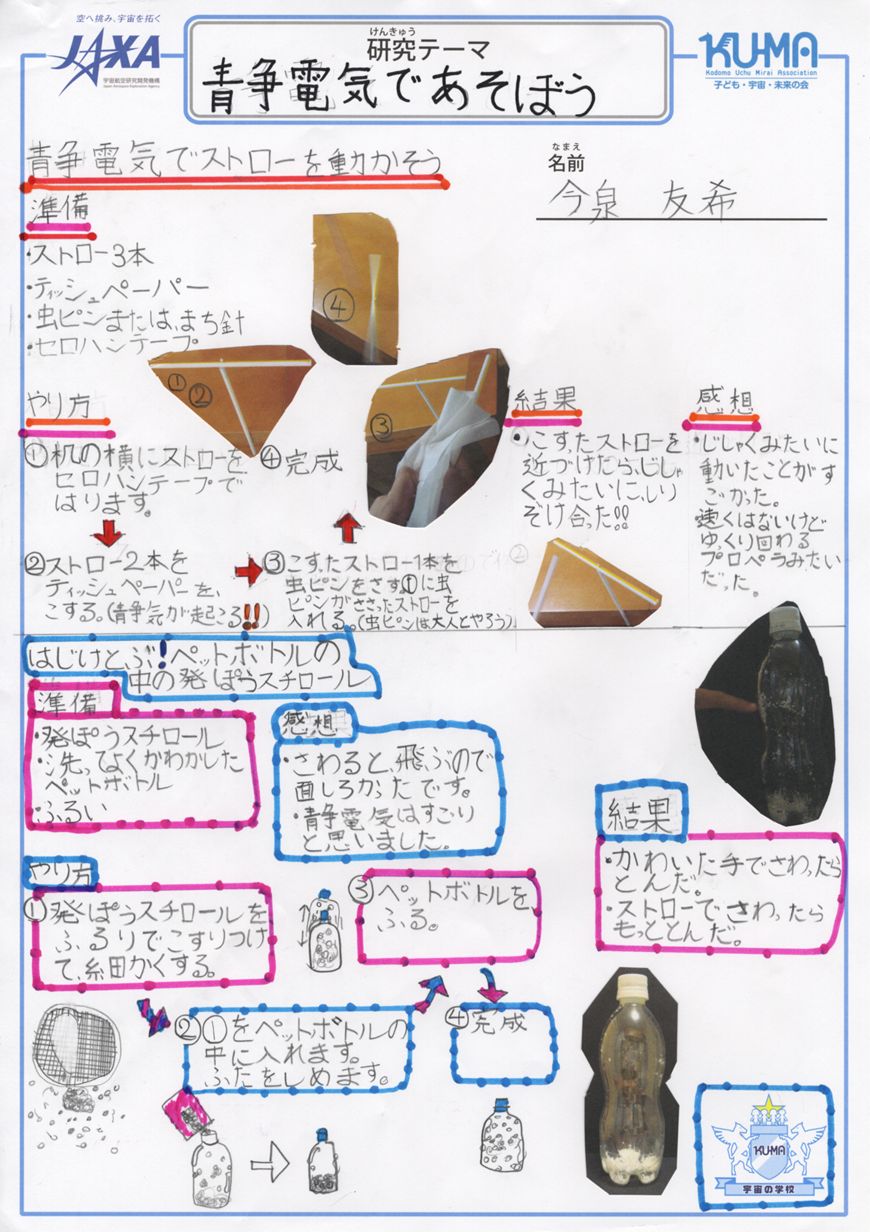 空へ挑み、宇宙を拓く
JAXA
宇宙航空研究開発機構
Japan Aerospace Exploration Agency
けんきゅう
研究テーマ
青争電気であそぼう
KU-MA
Kodomo Uchu Mirai Association
子ども・宇宙・未来の会
なまえ
名前
今泉 友希
青争電気でストローを動かそう
準備
・ストロー3本
・ティッシュペーパー
・虫ピンまたは、まち針
・セロハンテープ
④
①②
③
やり方
①机の横にストローを
セロハンテープで
はります。
②ストロー2本を
ティッシュペーパーを、
こする。(青争気が起こる!!)
③こすったストロー1本を
虫ピンをさす。①に虫
ピンがささったストローを
入れる。(虫ピンは大人とやろう)
④完成
結果
・こすったストローを
近づけたら、じしゃ
くみたいに、しり
ぞけ合った!!
②
感想
・じしゃくみたいに
動いたことがす
ごかった。
速くはないけど
ゆっくり回わる
プロペラみたい
だった。
はじけとぶ!ペットボトルの
中の発ぽうスチロール
準備
・発ぽうスチロール
・洗ってよくかわかした
ペットボトル
・ふるい
感想
・さわると、飛ぶので
面しろかったです。
・静電気はすごい
と思いました。
結果
・かわいた手でさわったら
とんだ。
・ストローでさわったら
もっととんだ。
やり方
①発ぽうスチロールを
ふるいでこすりつけ
て、細かくする。
②①をペットボトルの
中に入れます。
ふたをしめます。
③ペットボトルを
ふる。
④完成
KU-MA
宇宙の学校